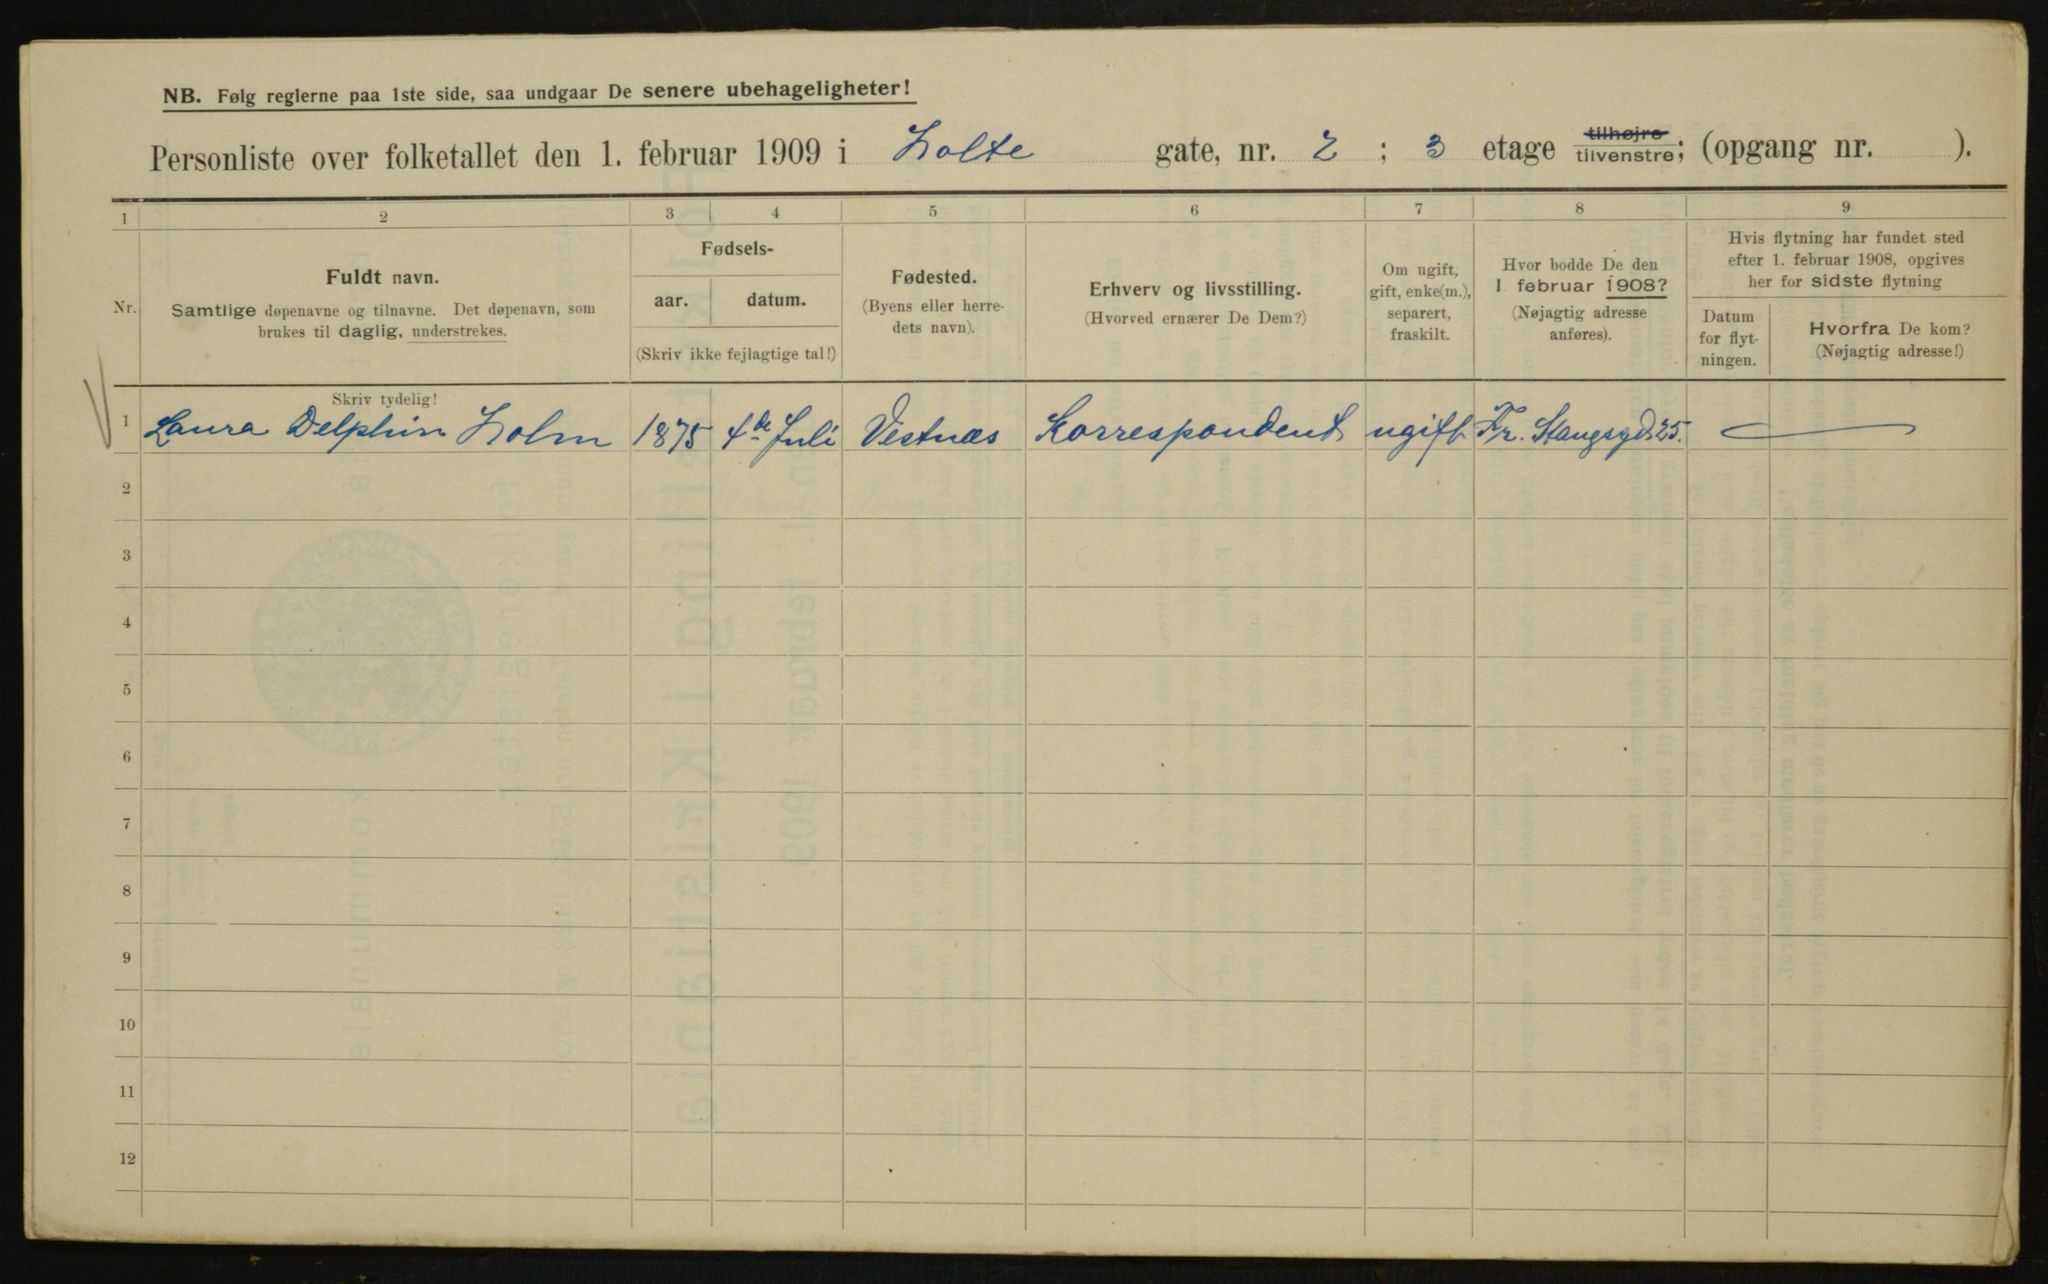 NB. Følg reglerne paa 1ste side, saa undgaar De senere ubehageligheter!
Personliste over folketallet den 1. februar 1909 i Holte gate, nr. 2 ; 3 etage tilhøjre tilvenstre; (opgang nr. ).
1 2 3 4 5 6 7 8 9
Nr.
Fuldt navn.
Samtlige døpenavne og tilnavne. Det døpenavn, som
brukes til daglig, understrekes.
Fødsels-
aar. datum.
(Skriv ikke fejlagtige tal!)
Fødested.
(Byens eller herre-
dets navn).
Erhverv og livsstilling.
(Hvorved ernærer De Dem?)
Om ugift,
gift, enke(m.),
separert,
fraskilt.
Hvor bodde De den
1. februar 1908?
(Nøjagtig adresse
anføres).
Hvis flytning har fundet sted
efter 1. februar 1908, opgives
her for sidste flytning
Datum
for flyt-
ningen.
Hvorfra De kom?
(Nøjagtig adresse!)
Skriv tydelig!
1 Laura Delphin Holm 1875 4de Juli Vestnæs Korrespondent ugift Fr. Stangsgd. 25.
2
3
4
5
6
7
8
9
10
11
12